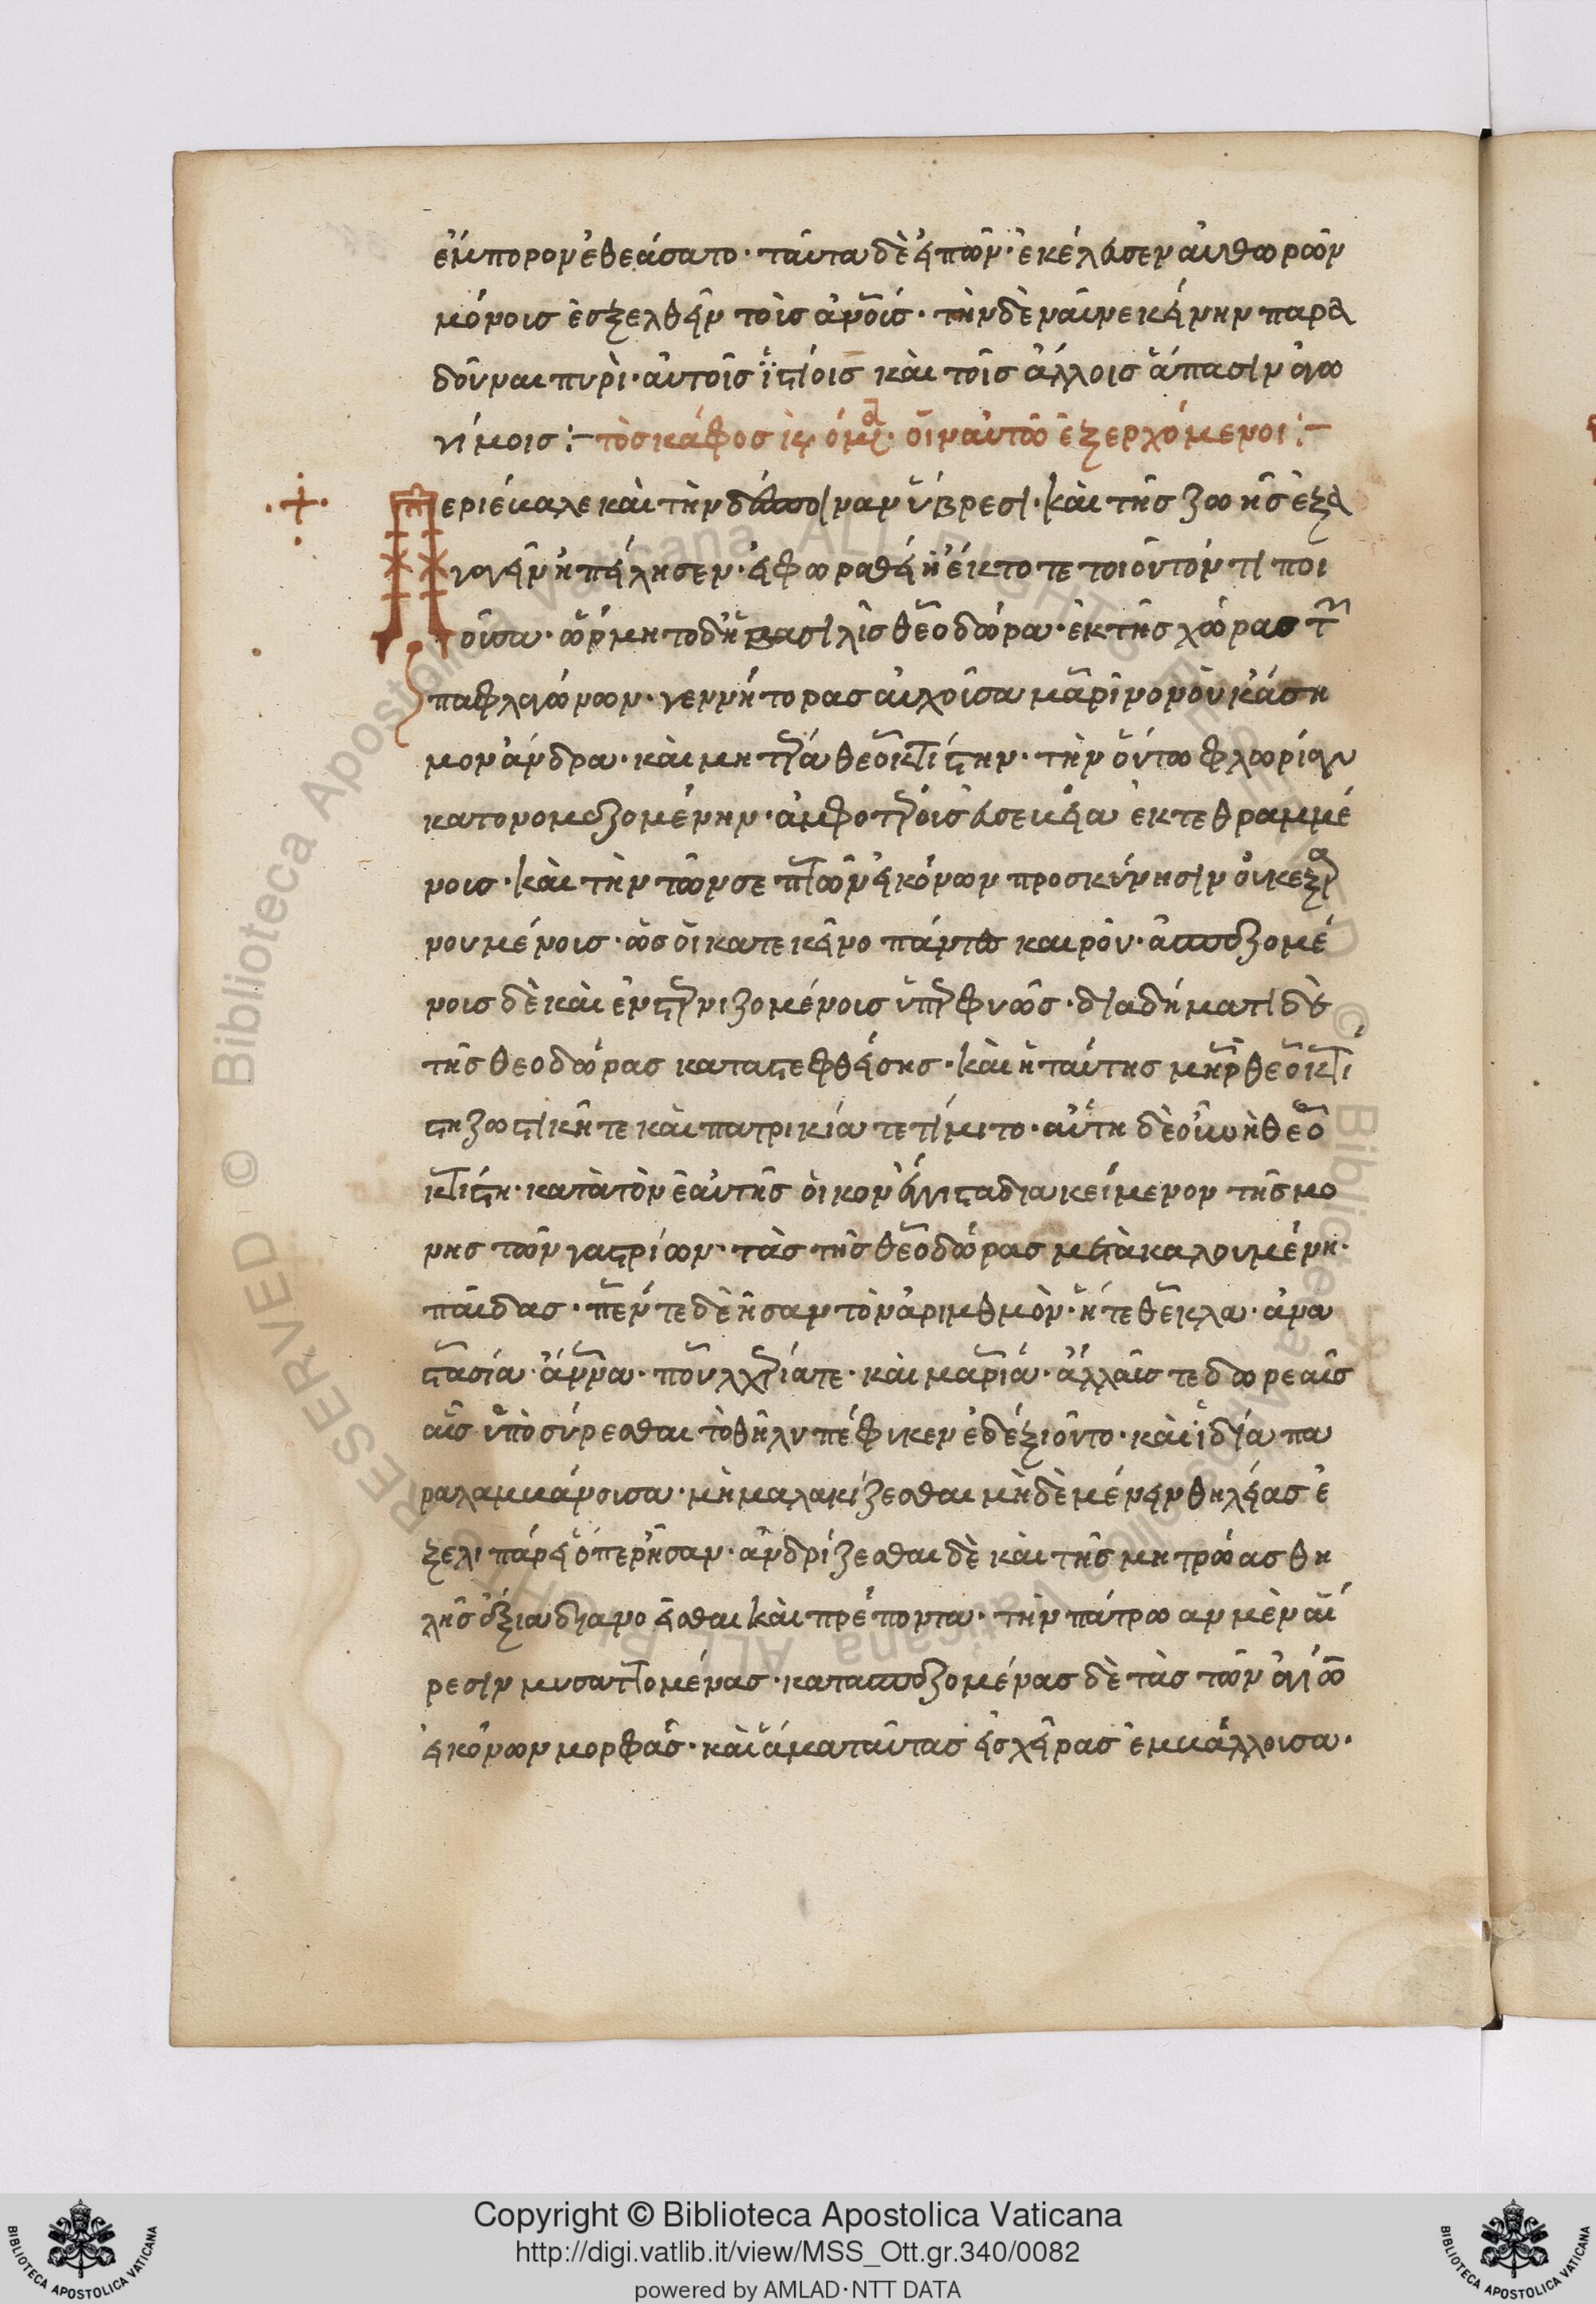 ἐμπορον ἐθεάσατο· ταῦτα δὲ εἰπῶν· ἐκέλευσεν αὐθωρῶν
μόνοις ἐσξελθεῖν τοὶς ἀνοῖς· τὴν δὲ ναῦν ἐκείνην παρα
δοῦναι πυρὶ· αὐτοῖς ἱστίοις καὶ τοῖς ἄλλοις ἅπασιν ἀγω
γίμοις :– τὸ σκάφος
ἐξερχόμενοι :–
εριέβαλε καὶ τὴν ὕβρεσι· καὶ τῆς ζωῆς ἐξα
γαγεῖν ἠπείλησεν· εἰ φωραθείη ἔκτοτε τοιοῦτόν τι ποι
οῦσα· ὥρμητο δ' ἡ βασιλὶς θεοδώρα· ἐκ τῆς χώρας τῶν
παφλαγώνων· γεννήτορας αὐχοῦσα μαρῖνον οὐκ ἄση
μον ἄνδρα· καὶ μητέρα θεοκτίστην· τὴν οὕτω φλωρίαν
κατονομαζομένην· ἀμφοτέροις εὐσεβεία ἐκτεθραμμέ
νοις· καὶ τὴν τῶν σεπτῶν εἰκόνων προσκύνησιν οὐκ ἐξα
ρνουμένοις· ὡς οἱ κατ' ἐκεῖνο πάντες καιροῦ· ἀσπαζομέ
νοις δὲ καὶ ἐνστερνιζομένοις ὑπερφυῶς· διαδήματι δὲ
τῆς θεοδώρας καταστεφθείσης· καὶ ἡ ταύτης μηρ θεοκτί
στη ζωστικῆ τε καὶ πατρικία τετίμιτο· αὕτη δὲ οὖν ἡ θεο
κτίστη· κατὰ τὸν ἑαυτῆς οἶκον ἄγγιστα διακείμενον τῆς μο
νης τῶν γαστρίων· τὰς τῆς θεοδώρας μετακαλουμένη·
παῖδας· πέντε δὲ ἦσαν τὸν ἀριμθμὸν· ἥ τε θέκλα· ἀνα
στασία· ἄννα· πουλχερία τε· καὶ μαρία· ἄλλαις τε δωρεαῖς
αἷς ὑποσύρεσθαι τὸ θῆλυ πέφυκεν ἐδεξιοῦτο· καὶ ἰδία πα
ραλαμβάνουσα· μὴ μαλακίζεσθαι μηδὲ μένειν θηλείας ἐ
ξελιπάρει ὅπερ ἦσαν· ἀνδρίζεσθαι δὲ καὶ τῆς μητρώας θη
λῆς ἄξια διανοεῖσθαι καὶ πρέποντα· τὴν πάτρωαν μὲν αἵ
ρεσιν μυσαττομένας· κατασπαζομένας δὲ τὰς τῶν ἁγίων
εἰκόνων μορφὰς· καὶ ἅμα ταύτας εἰς χεῖρας ἐμβάλλουσα·
Copyright © Biblioteca Apostolica Vaticana
http://digi.vatlib.it/view/MSS_Ott.gr.340/0082
powered by AMLAD·NTT DATA